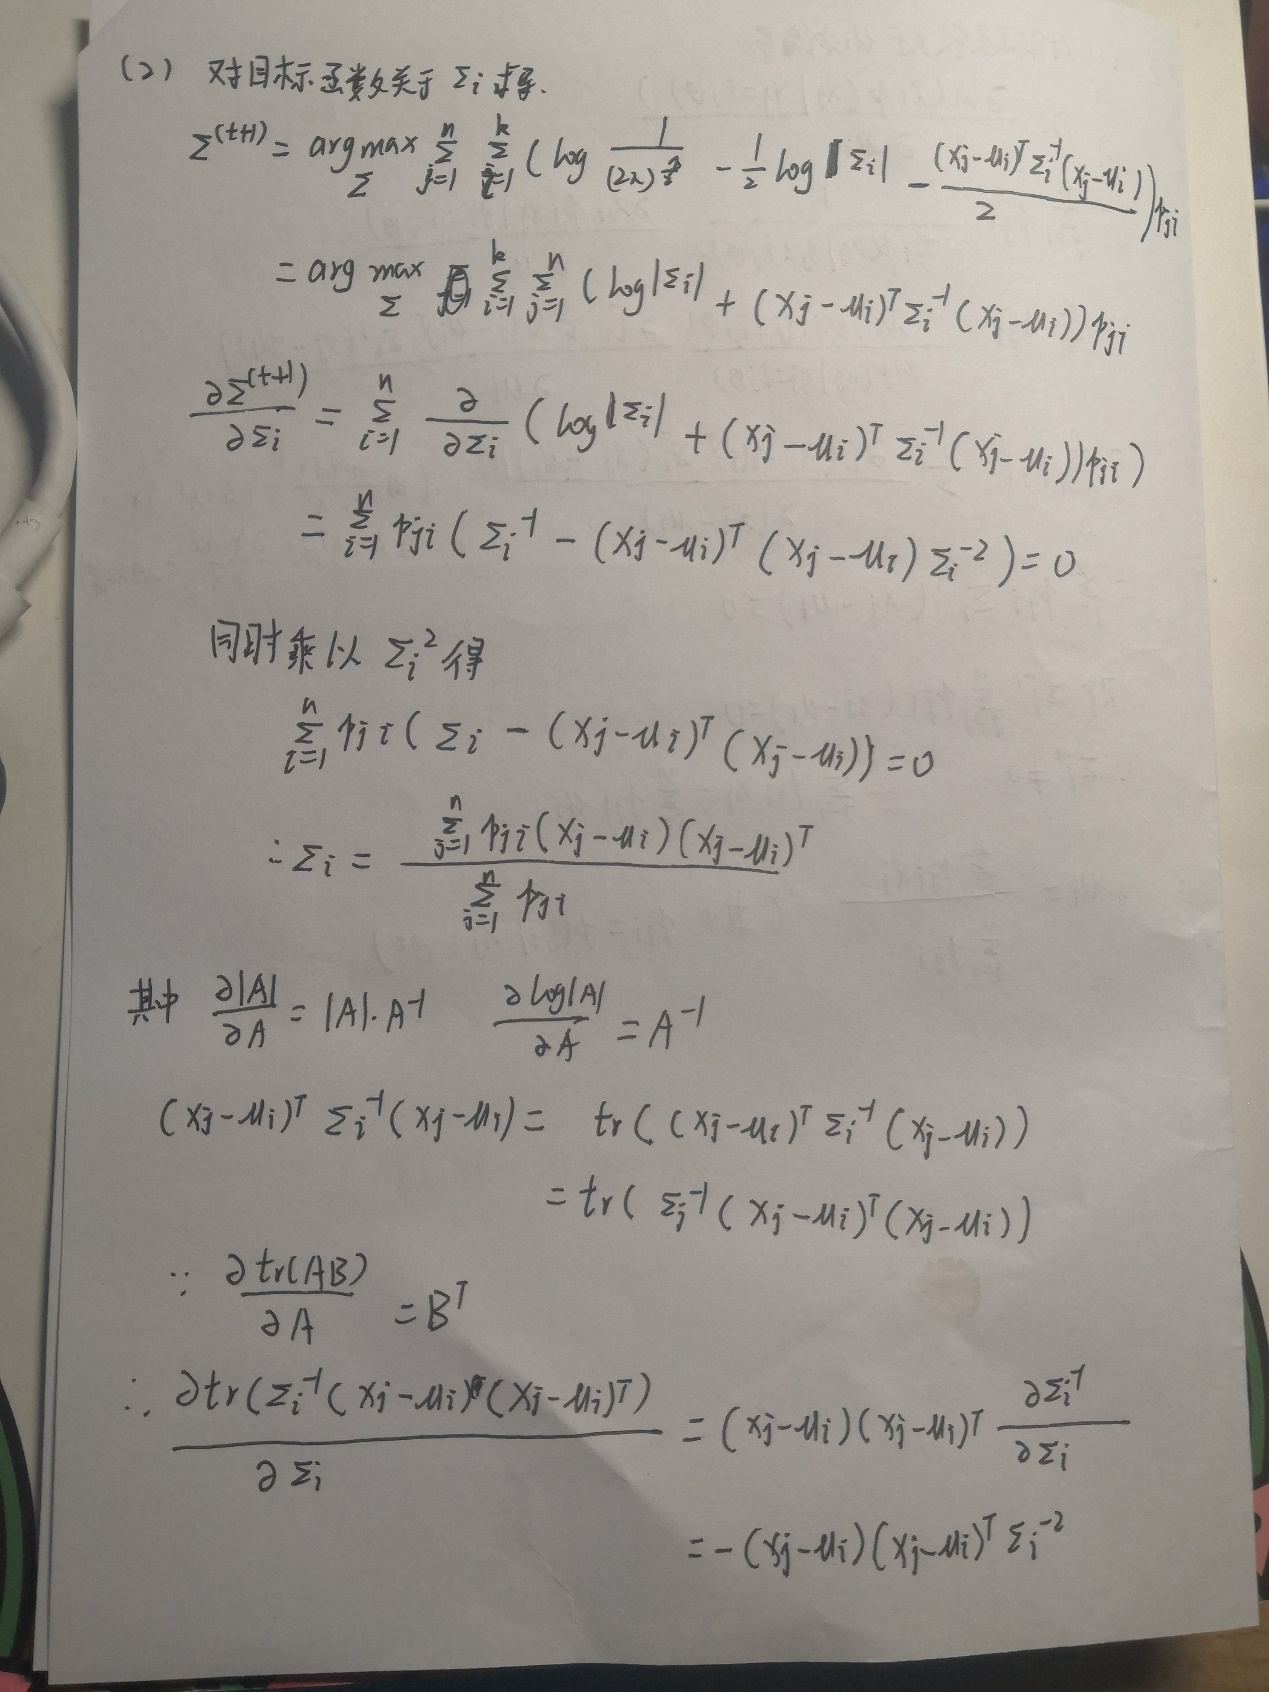 (2) 对目标函数关于 Σi 求导.
Σ^(t+1) = argmax_Σ Σ_{j=1}^n Σ_{i=1}^k (log 1/(2π)^{d/2} - 1/2 log |Σi| - (xj-μi)^T Σi^-1 (xj-μi)/2) pji
= arg max_Σ Σ_{i=1}^k Σ_{j=1}^n (log|Σi| + (xj-μi)^T Σi^-1 (xj-μi)) pji
∂Σ^(t+1)/∂Σi = Σ_{i=1}^n ∂/∂Σi (log|Σi| + (xj-μi)^T Σi^-1 (xj-μi)) pji)
= Σ_{i=1}^n pji (Σi^-1 - (xj-μi)^T (xj-μi) Σi^-2) = 0
同时乘以 Σi^2 得
Σ_{i=1}^n pji (Σi - (xj-μi)^T (xj-μi)) = 0
∴ Σi = Σ_{j=1}^n pji (xj-μi)(xj-μi)^T / Σ_{j=1}^n pji
其中 ∂|A|/∂A = |A|·A^-1 ∂log|A|/∂A = A^-1
(xj-μi)^T Σi^-1 (xj-μi) = tr((xj-μi)^T Σi^-1 (xj-μi))
= tr(Σi^-1 (xj-μi)^T (xj-μi))
∵ ∂tr(AB)/∂A = B^T
∴ ∂tr(Σi^-1 (xj-μi)(xj-μi)^T)/∂Σi = (xj-μi)(xj-μi)^T ∂Σi^-1/∂Σi
= -(xj-μi)(xj-μi)^T Σi^-2